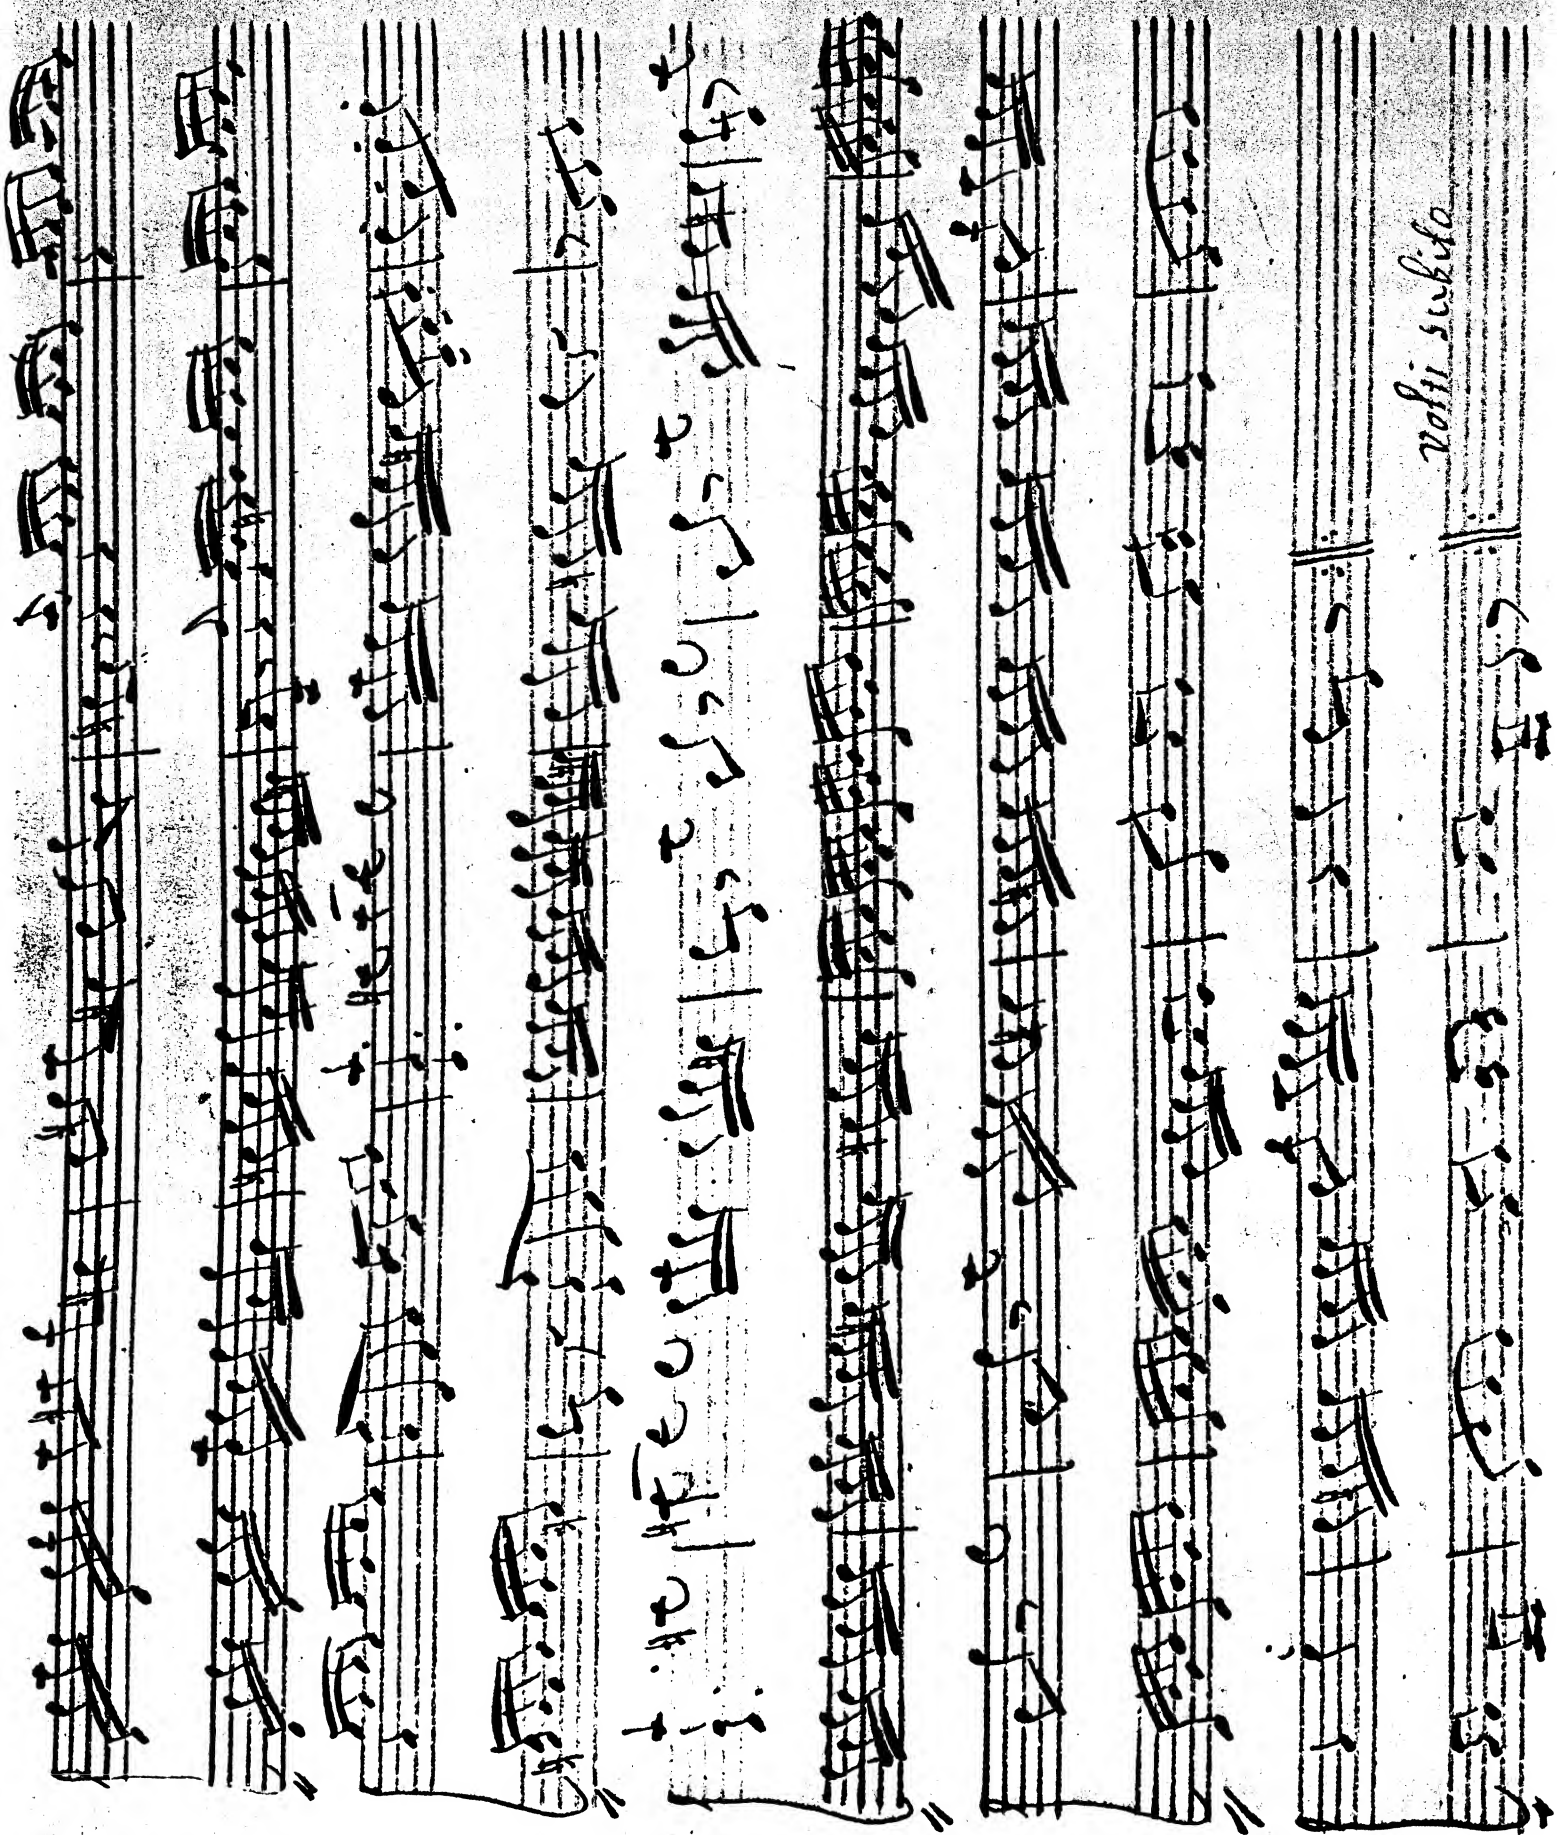 Volti subito